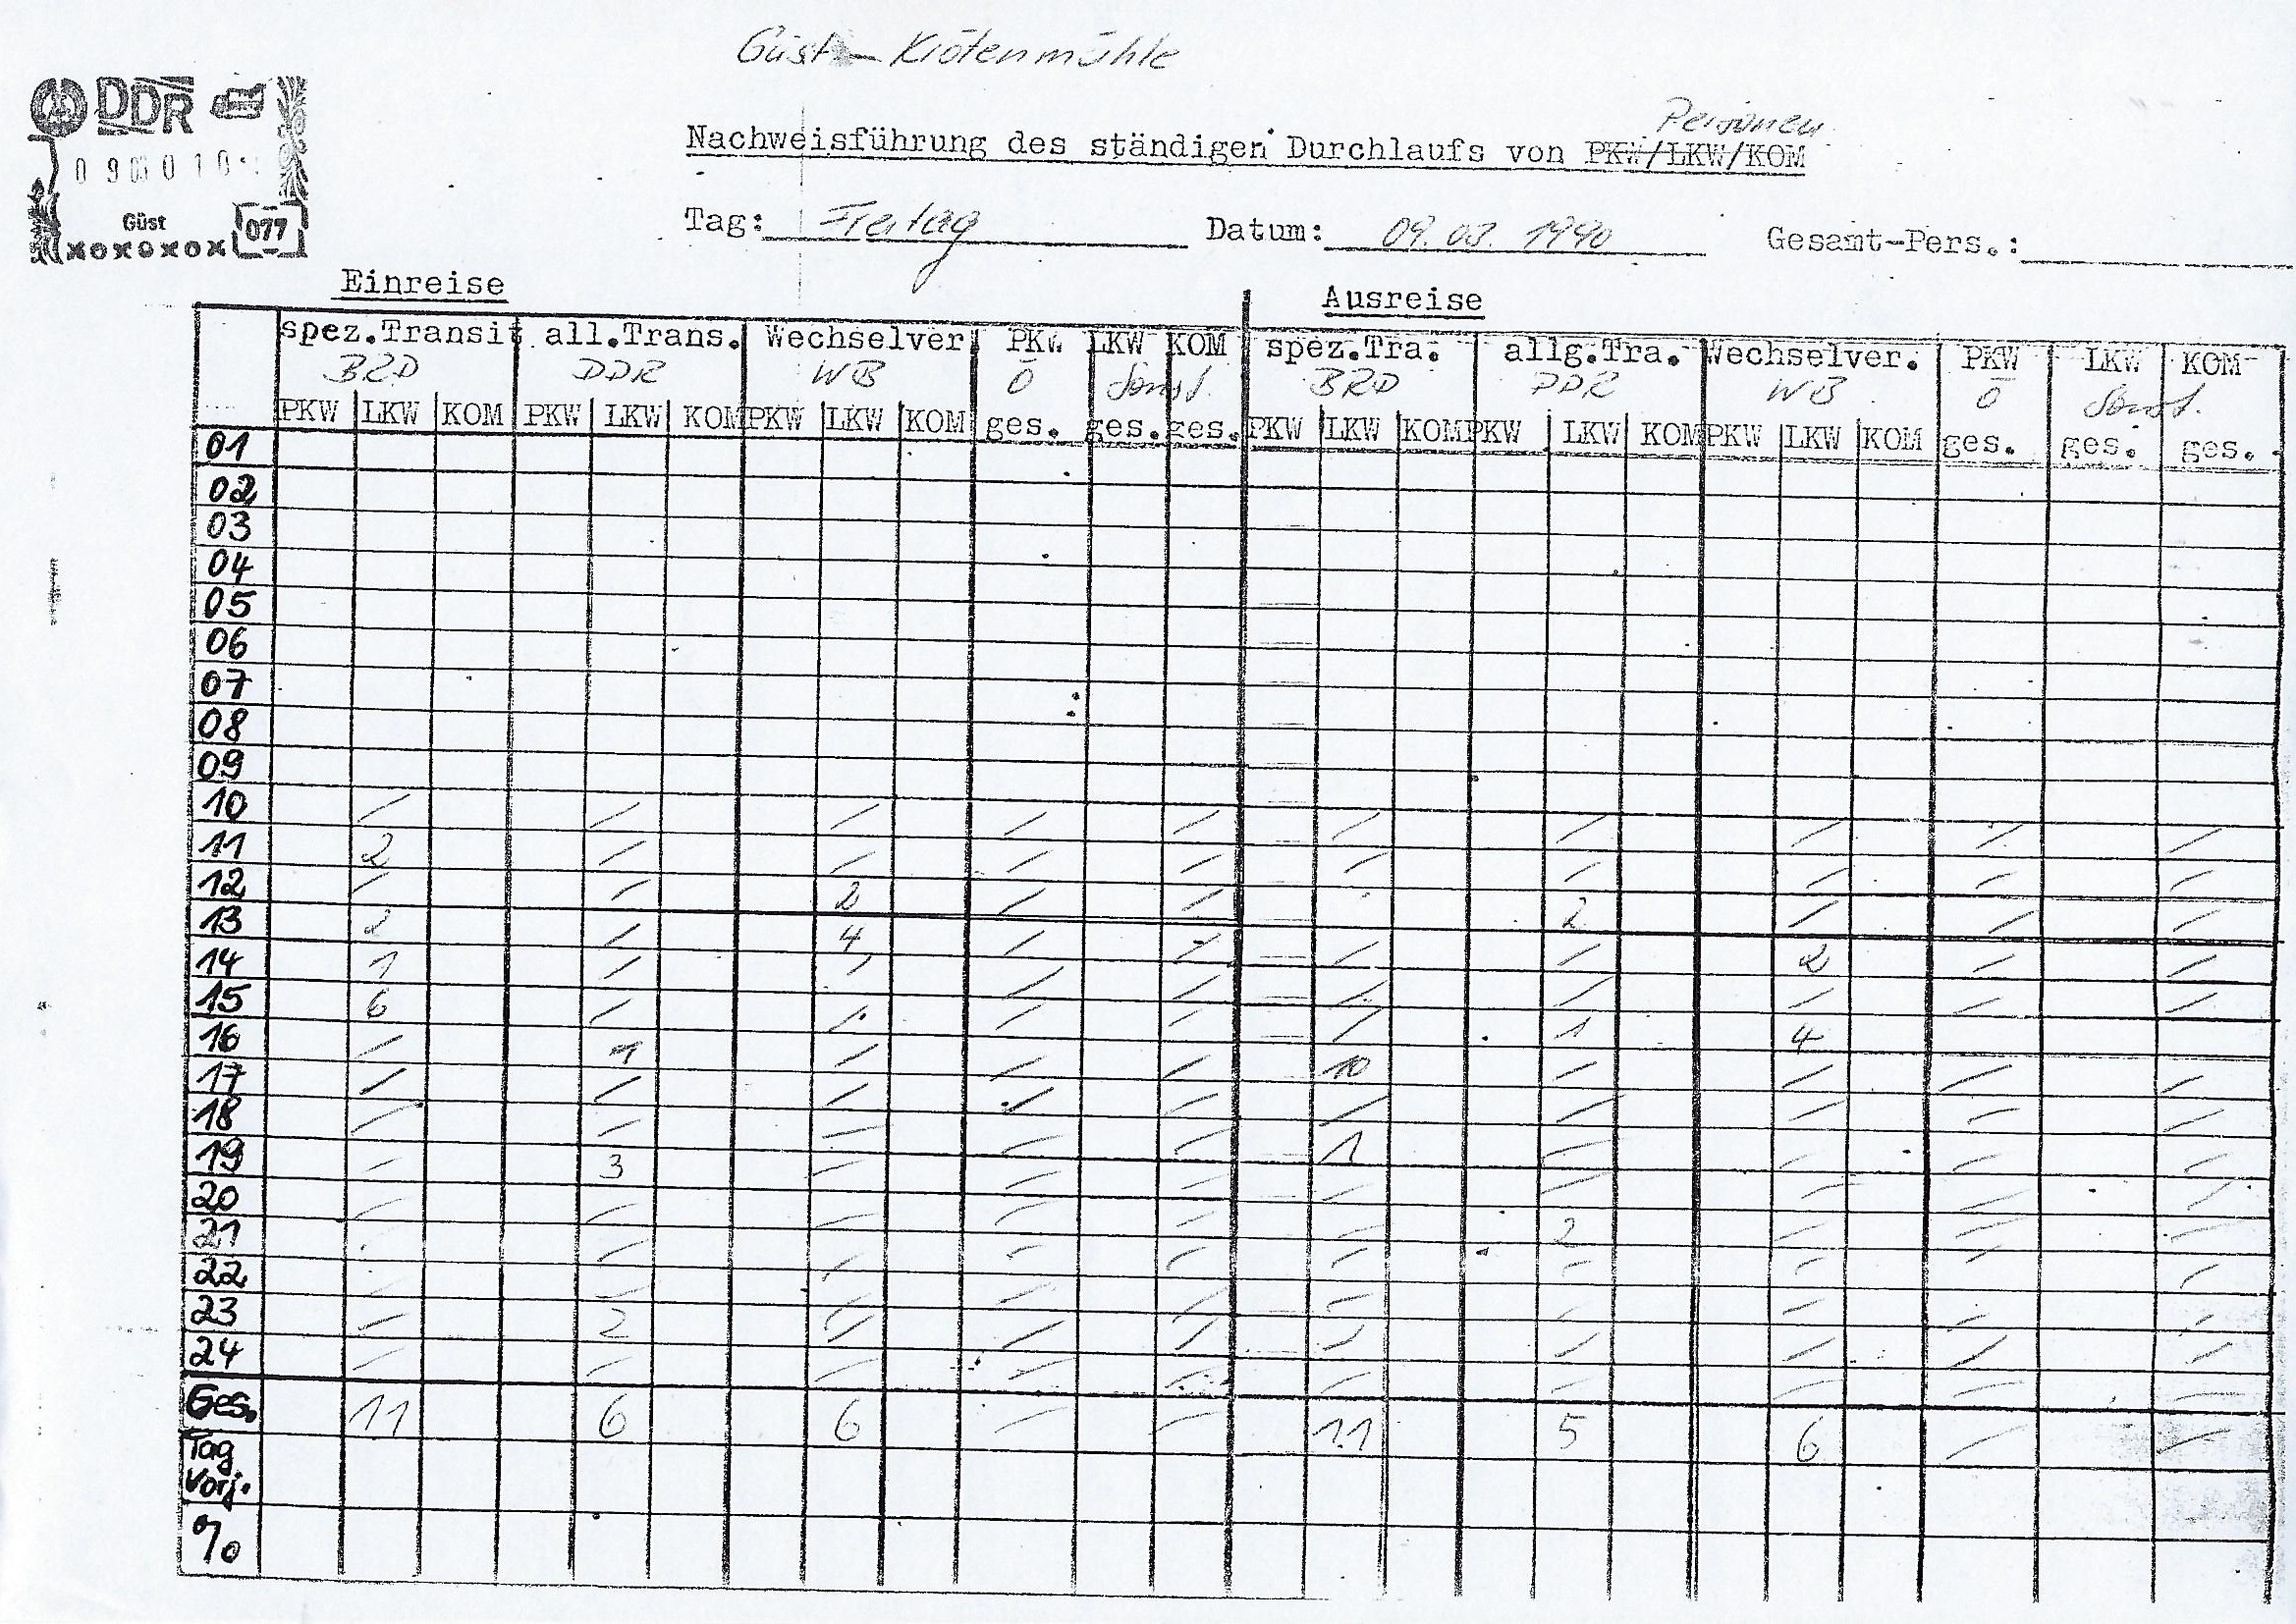 Güst – Krötenmühle
DDR
Güst 077
xoxoxox
Personen
Nachweisführung des ständigen Durchlaufs von PKW/LKW/KOM
Tag: Freitag Datum: 09.03.1990 Gesamt-Pers.:
Einreise Ausreise
spez.Transit all.Trans. Wechselver PKW LKW KOM spez.Tra. allg.Tra. Wechselver. PKW LKW KOM
BRD DDR WB Ö Sonst. BRD DDR WB Ö Sonst.
PKW LKW KOM PKW LKW KOM PKW LKW KOM ges. ges. ges. PKW LKW KOM PKW LKW KOM PKW LKW KOM ges. ges. ges.
01
02
03
04
05
06
07
08
09
10 / / / / / / / / / /
11 2 / / / / / / / / /
12 / / 2 / / 2 / / /
13 2 / 4 / / / / 2 / /
14 1 / / / / / / / / /
15 6 / / / / / 1 4
16 / 1 / / / 10 / / / /
17 / / / / / / / / / /
18 / / / / / 1 / / / /
19 / 3 / / / / / / / /
20 / / / / / / 2 / / /
21 / / / / / / / / / /
22 / / / / / / / / / /
23 / 2 / / / / / / / /
24 / / / / / / / / / /
Ges. 11 6 6 / / 11 5 6 / /
Tag
Vorj.
%